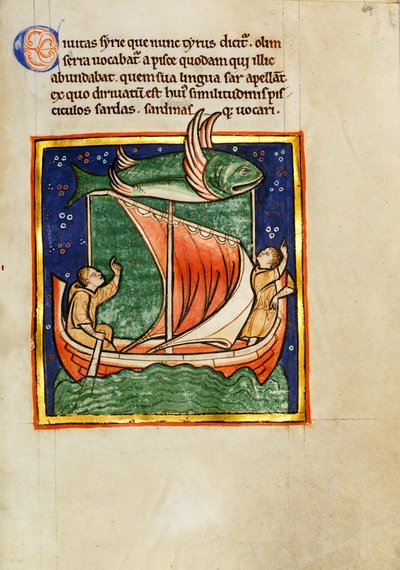 Ciuitas syrie que nunc tyrus dicit͛. olim
seria uocabat͛ a pisce quodam qui illic
abundabat. quem sua lingua sar apellãt
ex quo diriuatũ est hui᷒ similitudinis pis
ciculos sardas. sardinas q; uocari.